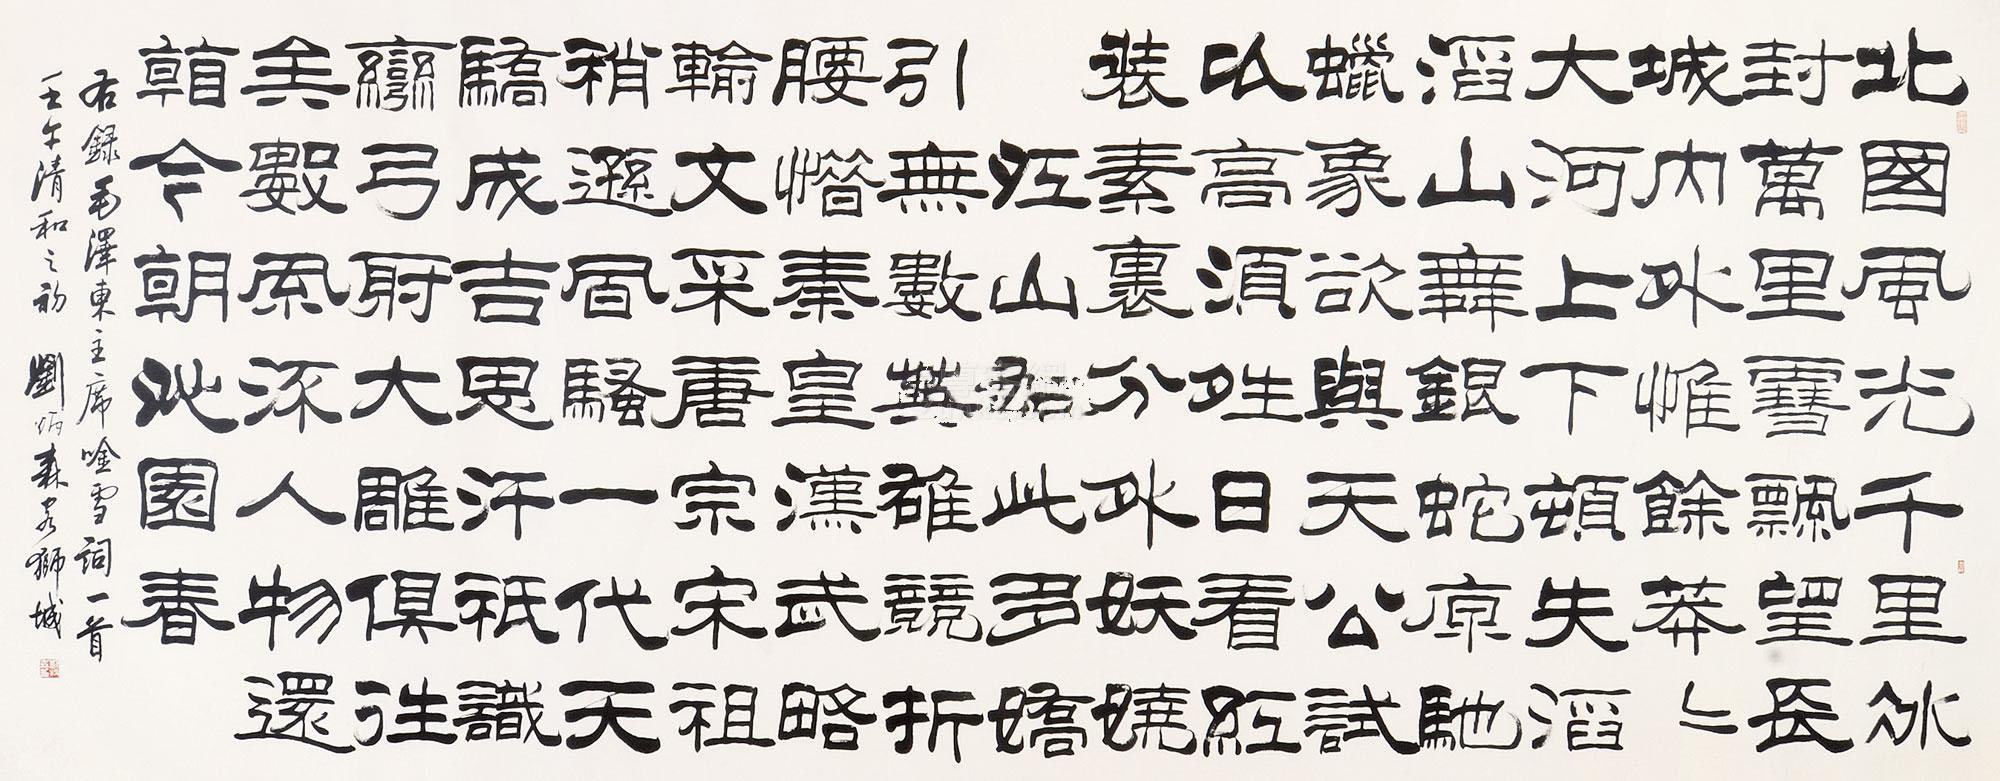 北國風光千里冰
封萬里雪飄望長
城内外惟餘莽々
大河上下頓失滔
滔山舞銀蛇原馳
蠟象欲與天公試
以高須夝日看紅
裝素裹分外妖嬈
江山如此多嬌
引無數英雄競折
腰惜秦皇漢武略
輸文采唐宗宋祖
稍遜風騷一代天
驕成吉思汗祇識
彎弓射大雕俱往
矣數風流人物還
看今朝沁園春
右録毛澤東主席唫雪詞一首
壬午清和之初 劉炳森客獅城